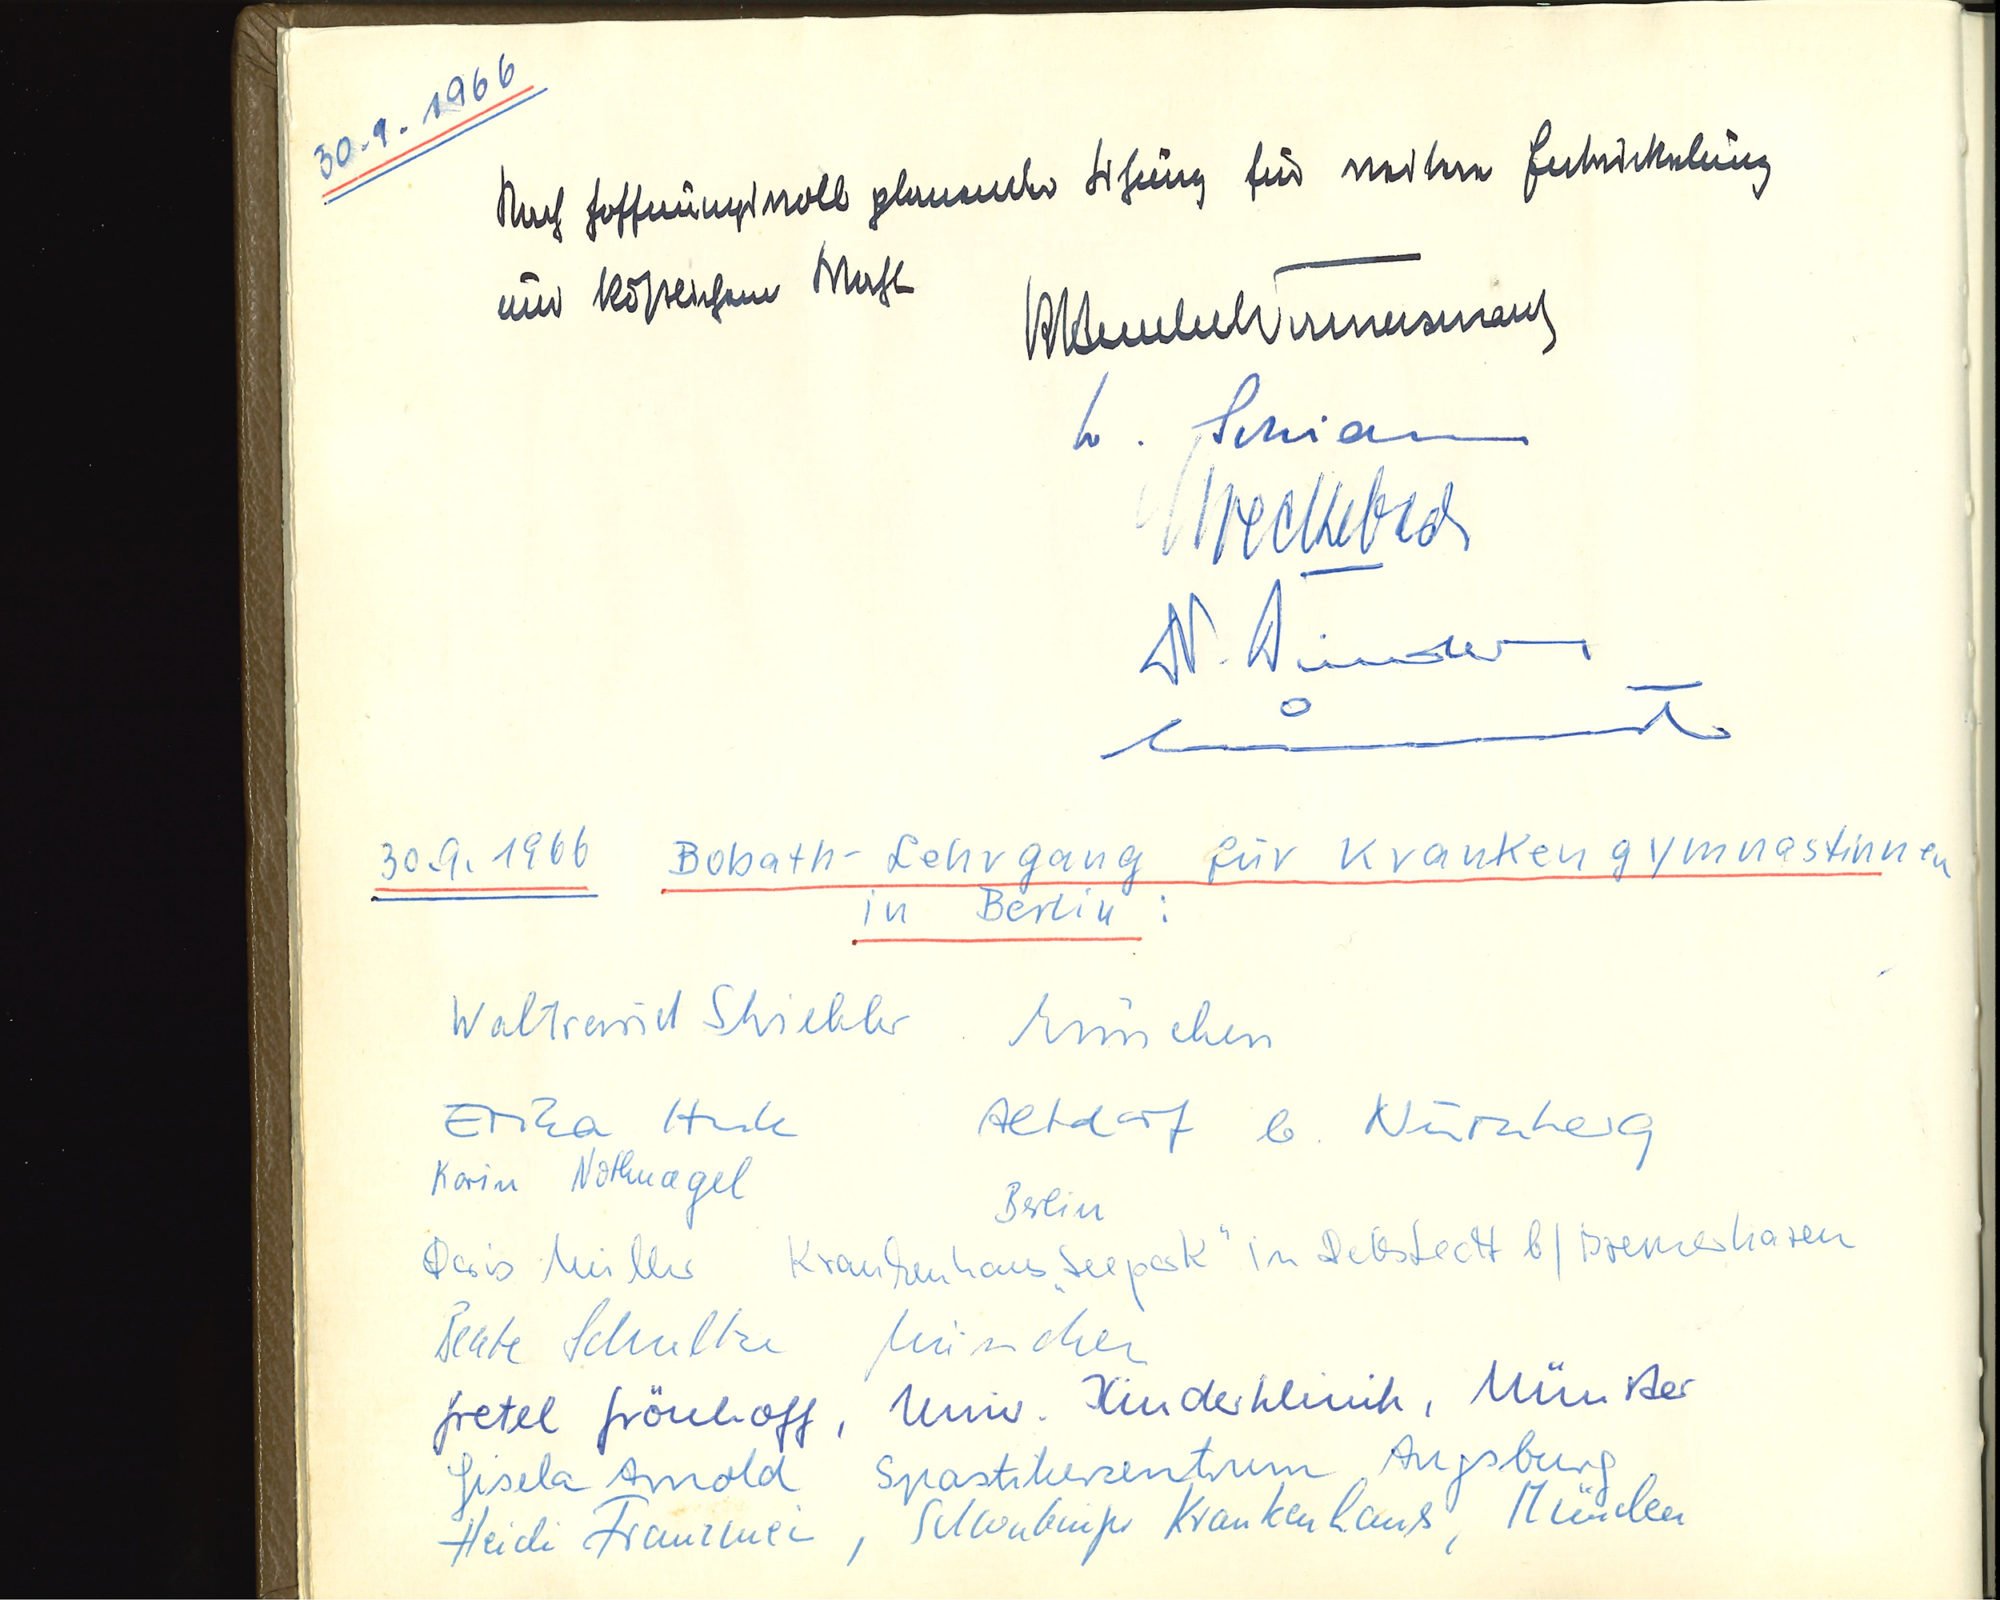 30.9.1966
Nach hoffnungsvoll planender Sitzung für weitere Entwicklung
und köstlichem Mahl
30.9.1966 Bobath-Lehrgang für Krankengymnastinnen
in Berlin:
Waltraud München
Erika Altdorf b. Nürnberg
Karin Nothnagel
Berlin
Doris Müller Krankenhaus „Seepark" in Debstedt b/Bremerhaven
Beate Schultze München
Gretel Grönhoff, Univ. Kinderklinik, Münster
Gisela Arnold Spastikerzentrum Augsburg
Heidi Krankenhaus, München